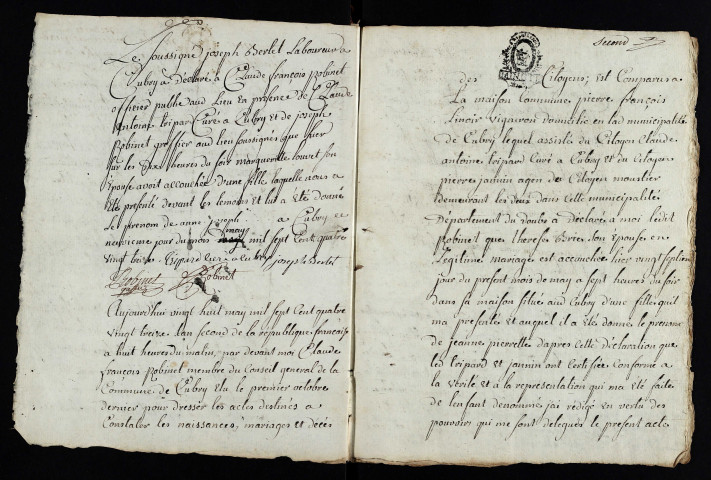 Le soussigné joseph Berlet Laboureur a
Cubry a déclaré a Claude françois Robinet
officier public aud Lieu en présence de Claude
antoine tripard Curé a Cubry et de joseph
Robinet greffier aud lieu soussignés que hier
sur les dix heures du soir margueritte louvet son
Epouse avoit accouchée d'une fille laquelle nous a
été présenté devant les temoins et lui a été donné
le prenom de anne joseph a Cubry ce
neuvieme jour du mois mil sept Cent quatre
vingt treize. tripard curé a cubry joseph Berlet
Robinet Robinet
Aujourdhui vingt huit may mil sept Cent quatre
vingt treize Lan second de la republique française
a huit heures du matin, par devant moi Claude
françois Robinet membre du Conseil general de la
Commune de Cubry Elu le premier octobre
dernier pour dresser les actes destinés a
Constater les naissances, mariages et décés
second
des Citoyens, est Comparu a
La maison Commune pierre françois
vigneron domicilié en lad municipalité
de Cubry lequel assisté du Citoyen Claude
antoine tripard Curé a Cubry et du Citoyen
pierre jannin agen de Citoyen moustier
demeurant les deux dans cette municipalité
Département du doubs a déclaré a moi ledit
Robinet que therese son Epouse en
Légitime mariage est accouchée hier vingt septieme
jour du present mois de may a sept heures du soir
dans sa maison située aud Cubry d'une fille quil
ma presenté et auquel il a été donné le prenom
de jeanne pierrette d'apres cette déclaration que
led tripard et jannin ont certifiée Conforme a
la vérité et à la représentation qui ma eté faite
de lenfant denommé jai redigé en vertu des
pouvoirs qui me sont delegués le present acte